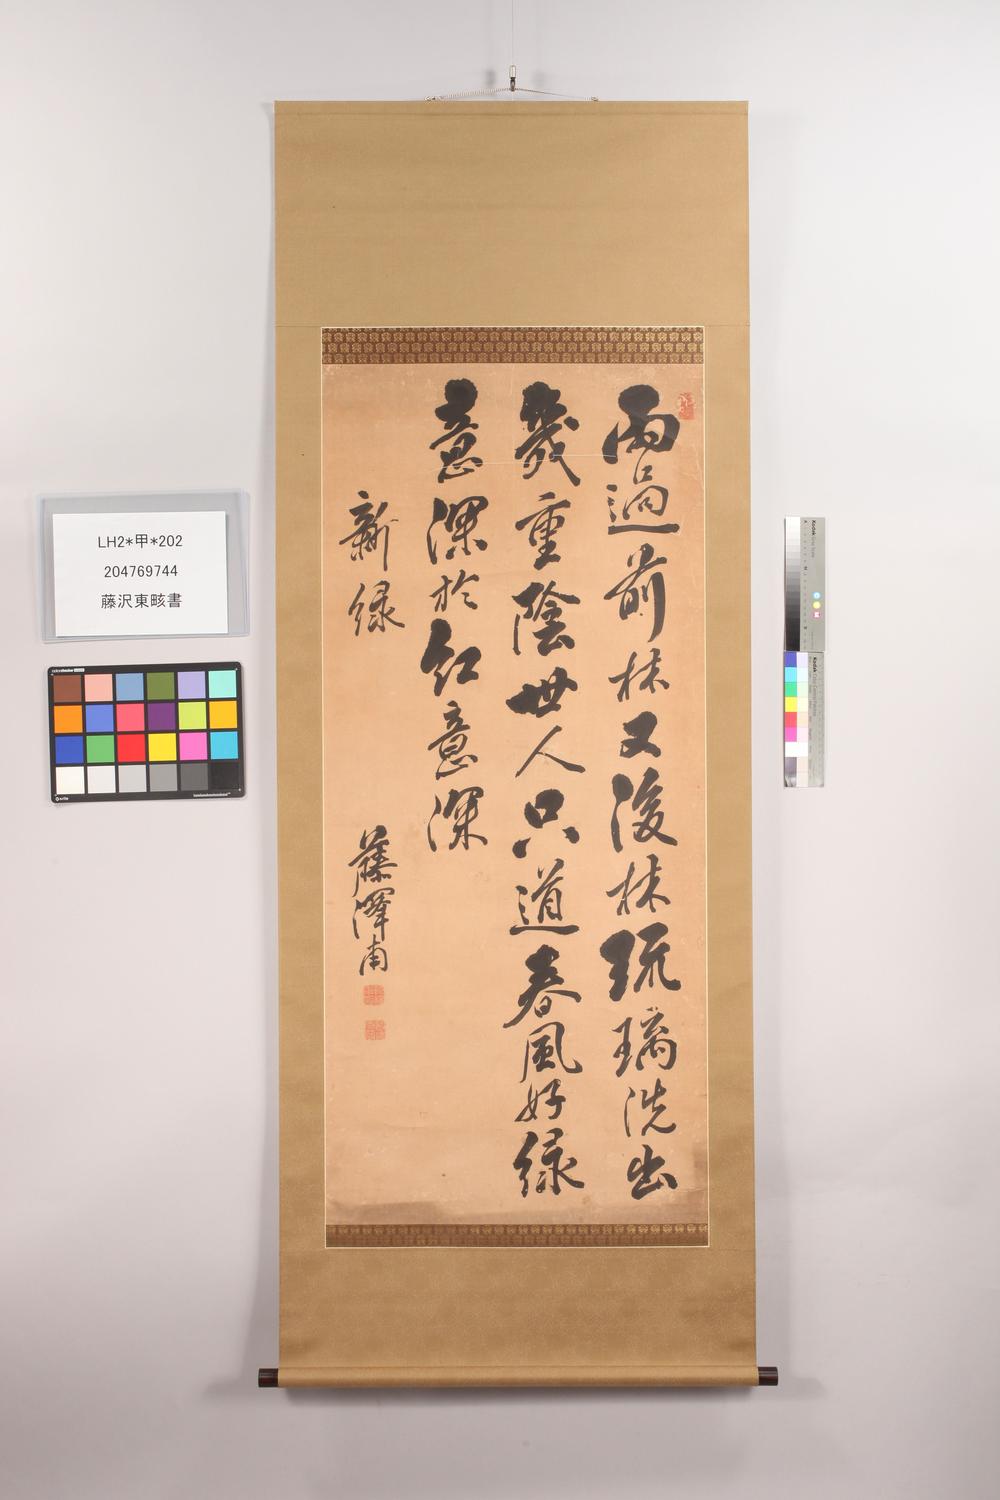 雨過前林又後林琉璃洗出
幾重陰世人只道春風好緑
意深於紅意深
新緑
藤澤甫
LH2*甲*202
204769744
藤沢東畡書